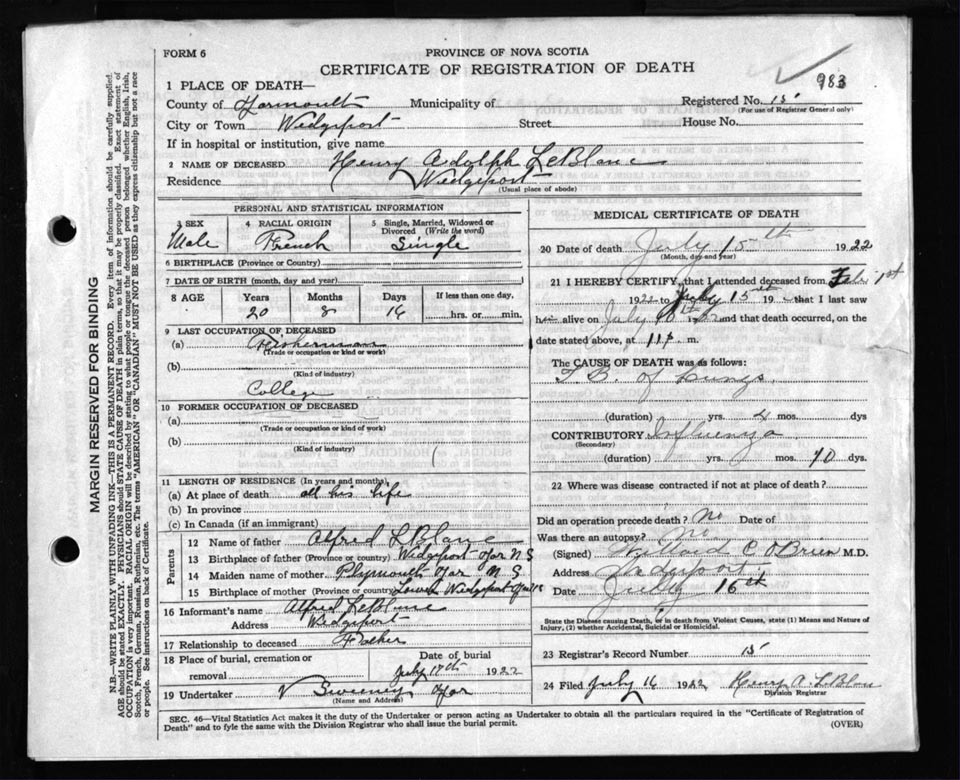 FORM 6
PROVINCE OF NOVA SCOTIA
CERTIFICATE OF REGISTRATION OF DEATH
983
1 PLACE OF DEATH—
County of Yarmouth Municipality of Registered No. 15
(For use of Registrar General only)
City or Town Wedgeport Street House No.
If in hospital or institution, give name
2 NAME OF DECEASED Henry Adolph LeBlanc
Residence Wedgeport
(Usual place of abode)
PERSONAL AND STATISTICAL INFORMATION
3 SEX
Male
4 RACIAL ORIGIN
French
5 Single, Married, Widowed or Divorced (Write the word)
Single
6 BIRTHPLACE (Province or Country)
7 DATE OF BIRTH (month, day and year)
8 AGE Years Months Days If less than one day,
20 8 14 hrs. or min.
9 LAST OCCUPATION OF DECEASED
(a) Fisherman
(Trade or occupation or kind or work)
(b)
(Kind of industry)
College
10 FORMER OCCUPATION OF DECEASED
(a)
(Trade or occupation or kind or work)
(b)
(Kind of industry)
11 LENGTH OF RESIDENCE (In years and months)
(a) At place of death all his life
(b) In province
(c) In Canada (if an immigrant)
Parents
12 Name of father Alfred LeBlanc
13 Birthplace of father (Province or country) Wedgeport Yar N S
14 Maiden name of mother Plymouth Yar N S
15 Birthplace of mother (Province or country) Lower Wedgeport Yar NS
16 Informant's name Alfred LeBlanc
Address Wedgeport
17 Relationship to deceased Father
18 Place of burial, cremation or removal
Date of burial
July 17th 1922
19 Undertaker V Sweeney Yar
(Name and Address)
MEDICAL CERTIFICATE OF DEATH
20 Date of death July 15th 1922
(Month, day and year)
21 I HEREBY CERTIFY, that I attended deceased from Feb 1st
1922 to July 15th 192 that I last saw
him alive on July and that death occurred, on
date stated above, at 11 P. m.
The CAUSE OF DEATH was as follows:
T.B. of Lungs.
(duration) yrs. 4 mos. dys
CONTRIBUTORY Influenza
(Secondary)
(duration) yrs. mos. 10 dys.
22 Where was disease contracted if not at place of death?
Did an operation precede death? No Date of
Was there an autopsy? No
(Signed) Willard C. O'Brien M.D.
Address Wedgeport
Date July 16th
State the Disease causing Death, or in death from Violent Causes, state (1) Means and Nature of
Injury, (2) whether Accidental, Suicidal or Homicidal.
23 Registrar's Record Number 15
24 Filed July 16 1922 Henry A. LeBlanc
Division Registrar
SEC. 46—Vital Statistics Act makes it the duty of the Undertaker or person acting as Undertaker to obtain all the particulars required in the "Certificate of Registration of
Death" and to fyle the same with the Division Registrar who shall issue the burial permit.
(OVER)
MARGIN RESERVED FOR BINDING
N.B.—WRITE PLAINLY WITH UNFADING INK—THIS IS A PERMANENT RECORD. Every item of information should be carefully supplied.
AGE should be stated EXACTLY. PHYSICIANS should STATE CAUSE OF DEATH in plain terms, so that it may be properly classified. Exact statement of
OCCUPATION is very important. RACIAL ORIGIN will be described by stating to what people or tongue the deceased person belonged whether English, Irish,
Scotch, French, German, Russian, Ruthenian, etc. The terms "AMERICAN" OR "CANADIAN" MUST NOT BE USED as they express citizenship but not a race
or people. See instructions on back of Certificate.